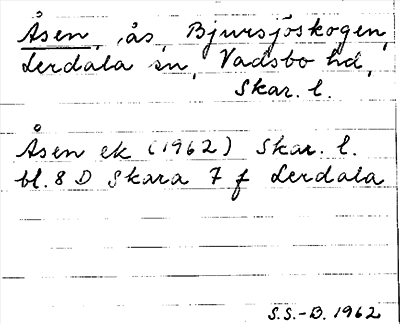 Åsen, ås, Bjursjöskogen,
Lerdala sn, Vadsbo hd,
Skar. l.
Åsen ek (1962) Skar. l.
bl. 8 D Skara 7 f Lerdala
S.S.-B. 1962